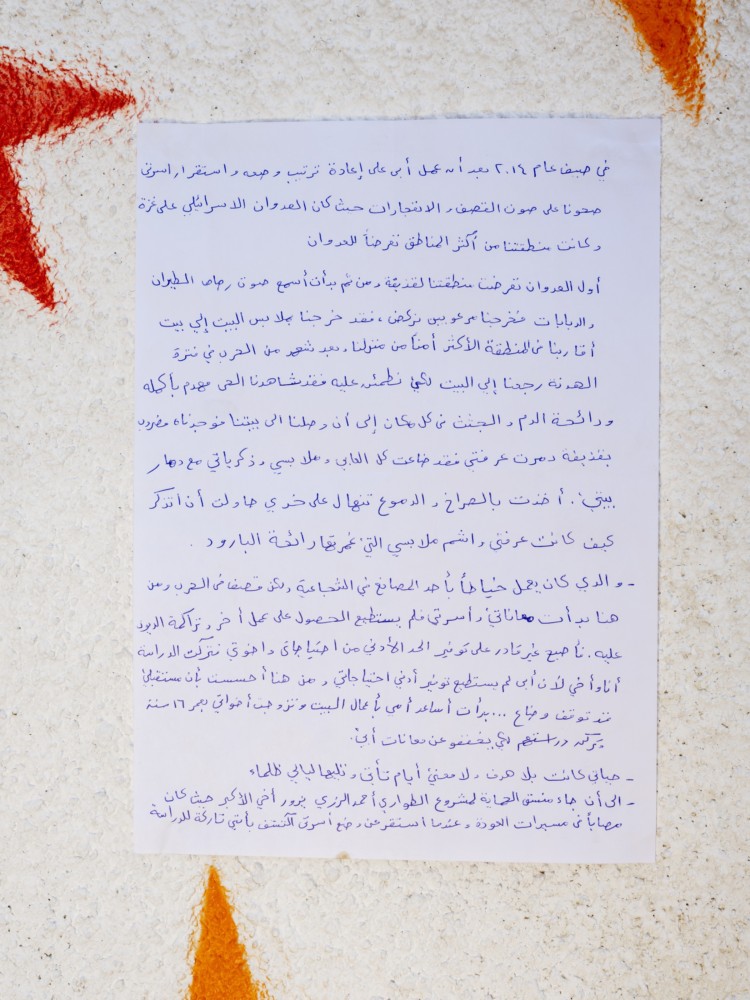 في صيف عام ٢٠١٤ بعد أن عمل أبي على إعادة ترتيب وضعه واستقرار اسرتي
صحونا على صوت القصف والانفجارات حيث كان العدوان الاسرائيلي على غزة
وكانت منطقتنا من أكثر المناطق تعرضاً للعدوان
أول العدوان تعرضت منطقتنا لقذيفة ومن ثم بدأت أسمع صوت رصاص الطيران
والدبابات فخرجنا مرعوبين نركض ، فقد خرجنا بملابس البيت إلي بيت
أقاربنا في المنطقة الأكثر أمناً من منزلنا وبعد شهر من الحرب في فترة
الهدنة رجعنا إلي البيت لكي نطمئن عليه فقد شاهدنا الحي مهدم بأكمله
ورائحة الدم والجثث في كل مكان إلى أن وصلنا الى بيتنا فوجدناه مضروب
بقذيفة دمرت غرفتي فقد ضاعت كل العابي وملابسي وذكرياتي مع دمار
بيتي . أخذت بالصراخ والدموع تنهال على خدي حاولت أن أتذكر
كيف كانت غرفتي واشتم ملابسي التي غمرتها رائحة البارود .
- والدي كان يعمل خياطاً بأحد المصانع في الشجاعية ولكن قصف في الحرب ومن
هنا بدأت معاناتي وأسرتي فلم يستطيع الحصول على عمل أخر وتراكمة الديون
عليه . فأصبح غير قادر على توفير الحد الأدنى من احتياجاتي واخوتي فتركت الدراسة
أنا وأخي لأن أبي لم يستطيع توفير أدني احتياجاتي ومن هنا أحسست بأن مستقبلي
قد توقف وضاع ... بدأت أساعد أمي بأعمال البيت وتزوجت أخواتي بعمر ١٦ سنة
دراستهم لكي يخففو عن معانات أبي .
- حياتي كانت بلا هدف ولا معني أيام تأتي وتليها ليالي ظلماء
- الى أن جاء منسق الحماية لمشروع الطوارئ أحمد الرزي يزور أخي الأكبر حيث كان
مصاباً في مسيرات العودة وعندما استفسر عن وضع أسرتي اكتشف بأنني تاركة للدراسة